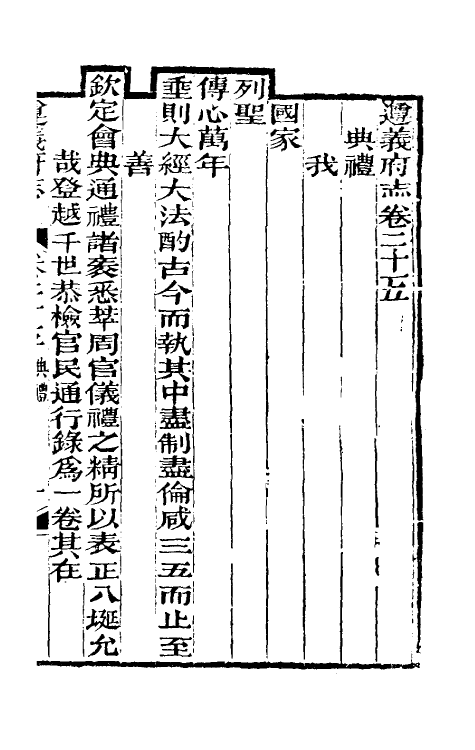 遵義府志卷二十五
典禮
我
國家
列聖
傳心萬年
垂則大經大法酌古今而執其中盡制盡倫咸三五而止至
善
欽定會典通禮諸袠悉萃周官儀禮之精所以表正八埏允
哉登越千世恭檢官民通行錄爲一卷其在
遵義府志
典禮